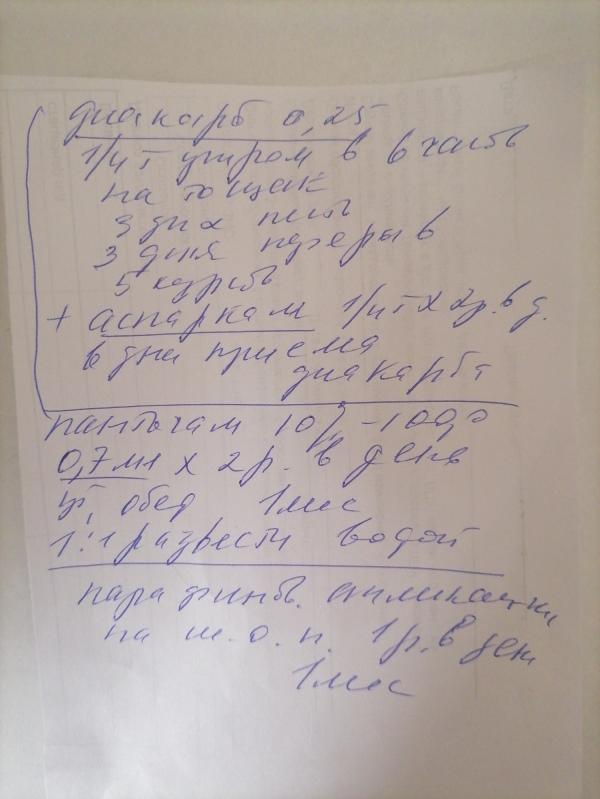 диакарб 0,25
1/4 т утром в 6 часов
на тощак
3 дня пить
3 дня перерыв
5 курсов
+ аспаркам 1/4 т х 2 р. в д.
в дни приема
диакарба
пантогам 10% - 100,0
0,7 мл х 2 р. в день
ут, обед 1 мес
1:1 развести водой
парафинов. аппликации
на ш. о. п. 1 р. в день
1 мес